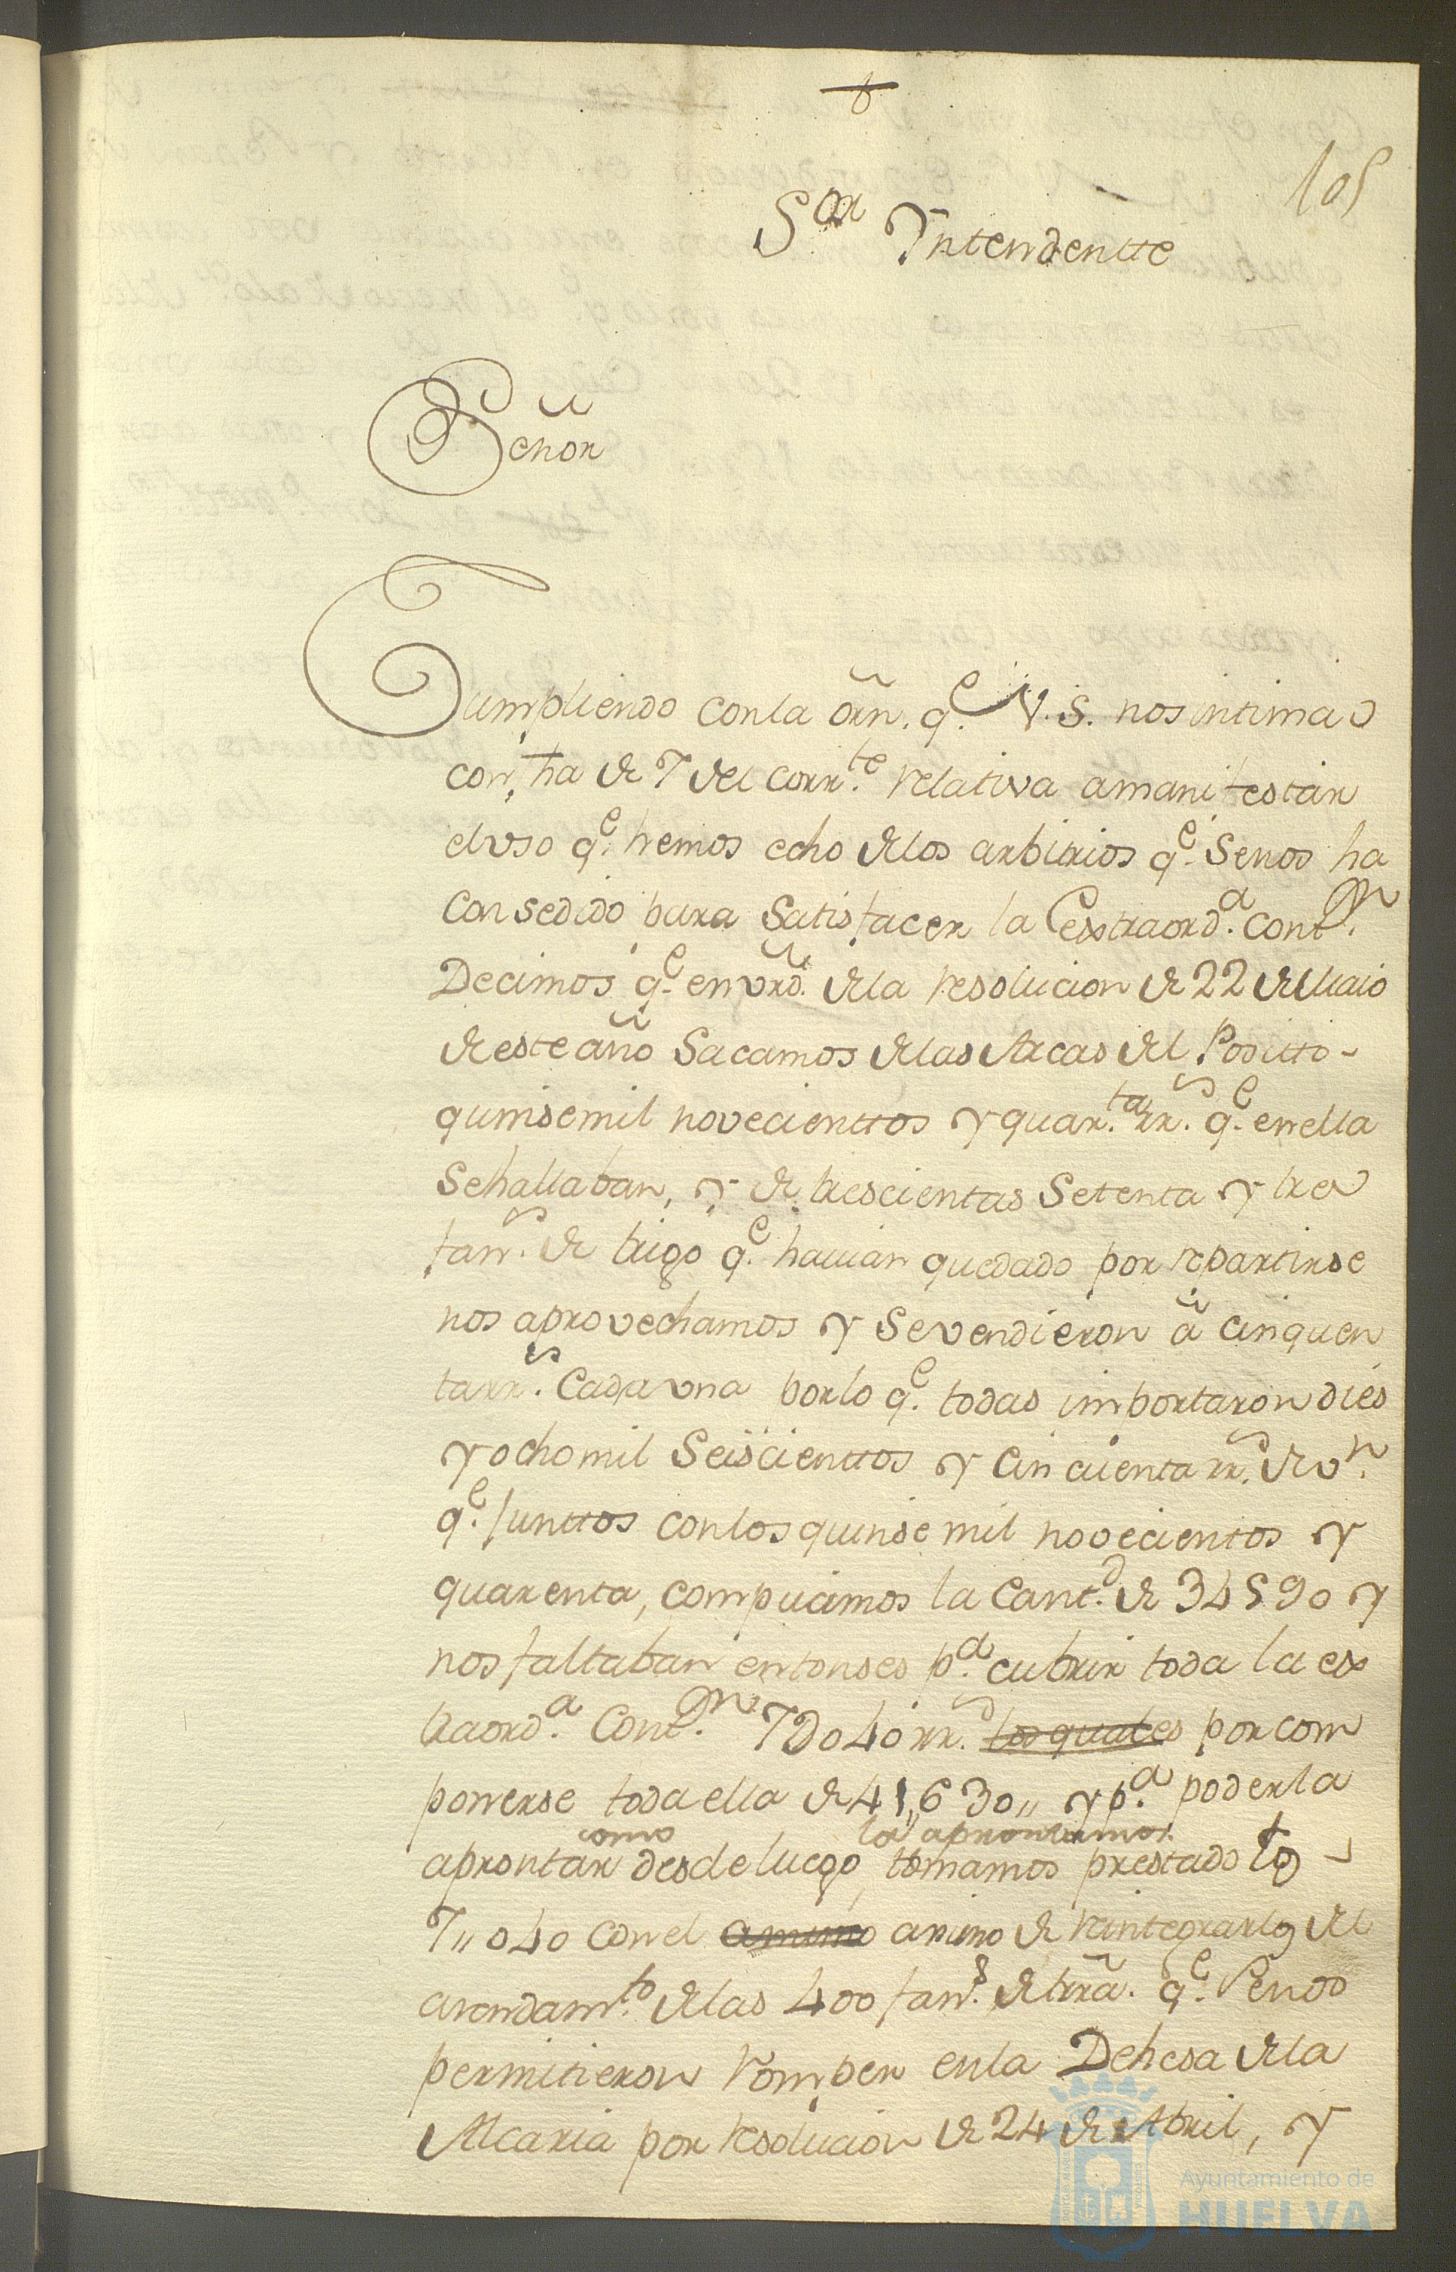 105
S.or Yntendentte
Señor
Cumpliendo conla orn. q.e V.S. nos intima
con fha de 7 del corr.te relativa amanifestar
eluso q.e hemos echo delos arbitrios q.e Senos ha
Consedido para Satisfacer la extraord.a cont.on
Decimos q.e en vrd. dela resolucion de 22 de Maio
deeste año Sacamos delas Arcas del Positto-
quinsemil novecienttos y quar.ta rr.s q.e enella
Sehallaban, y de trescientas Setenta y tres
fan.s de trigo q.e havian quedado por repartirse
nos aprovechamos y Sevendieron â cinquen
tarr.s Cadauna porlo q.e todas importaron dies
y ochomil Seiscienttos y Cincuenta rr.s de v.n
q.e Junttos conlos quinse mil novecientos y
quarenta, compucimos la Cant.d de 34590 y
nos faltaban entonses p.a cubrir toda la ex
traord.a Cont.on 7D040 rr.s los quales por com
ponerse toda ella de 41,,630,, y p.a poderla
como la aprontamos
aprontar desde luego, tomamos prestado lo
7,,040 conel animo animo de reintegrarlo del
arrendam.to delas 400 fan.s de trra. q.e Senos
permitieron Romper enla Dehesa dela
Alcaria por resolucion de 24 de Abril, y
Ayuntamiento de
HUELVA